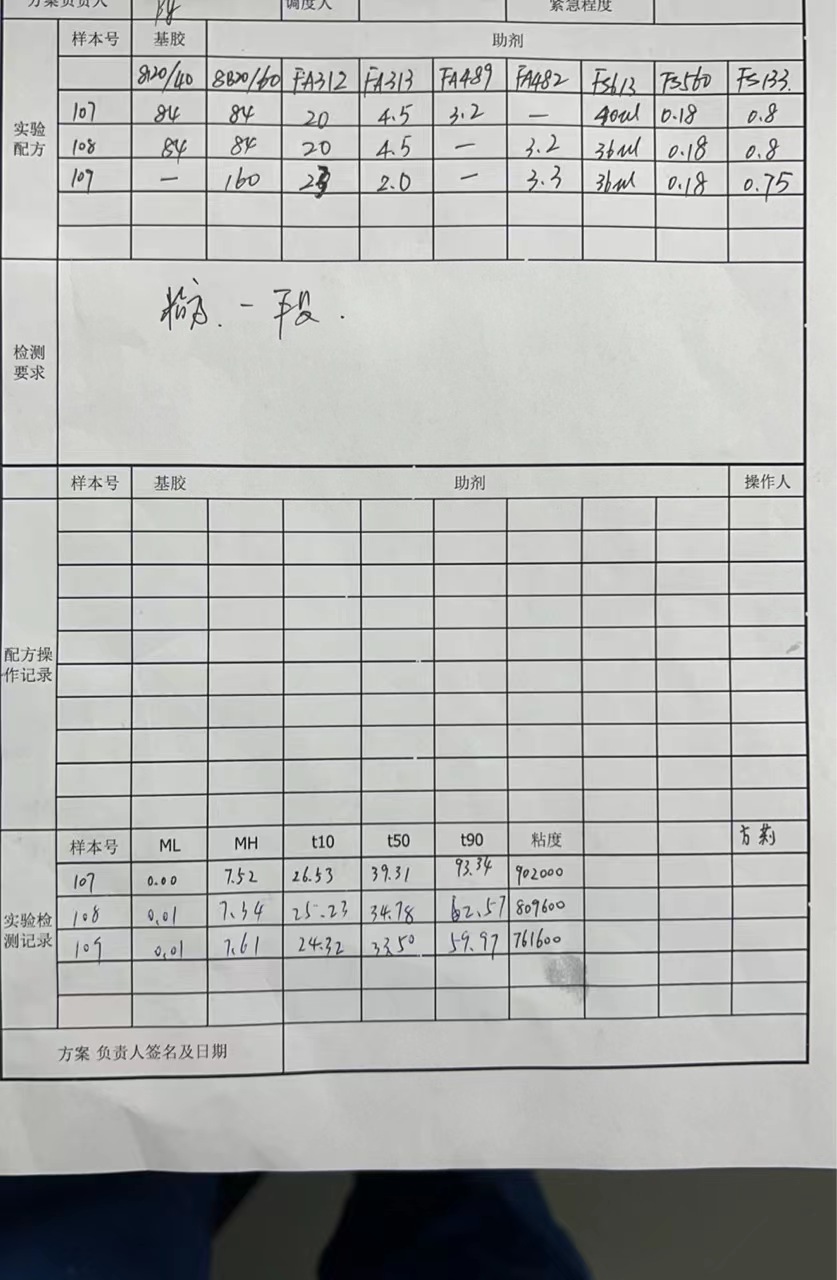 方案负责人 调度人 紧急程度
样本号 基胶 助剂
8120/40 8820/60 FA312 FA313 FA489 FA482 FS613 FS560 FS133.
实验配方
107 84 84 20 4.5 3.2 — 40ul 0.18 0.8
108 84 84 20 4.5 — 3.2 36ul 0.18 0.8
109 — 160 2.0 — 3.3 36ul 0.18 0.75
检测要求
一 段.
样本号 基胶 助剂 操作人
配方操作记录
样本号 ML MH t10 t50 t90 粘度
实验检测记录
107 0.00 7.52 26.53 39.31 93.34 902000
108 0.01 7.34 25.23 34.78 62.57 809600
109 0.01 7.61 24.32 33.50 59.97 761600
方案 负责人签名及日期